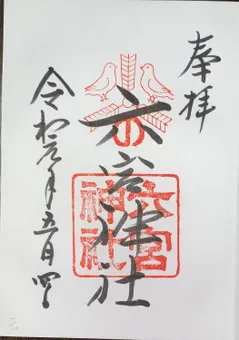 奉拝
六宮神社
六宮神社
令和元年五月四日